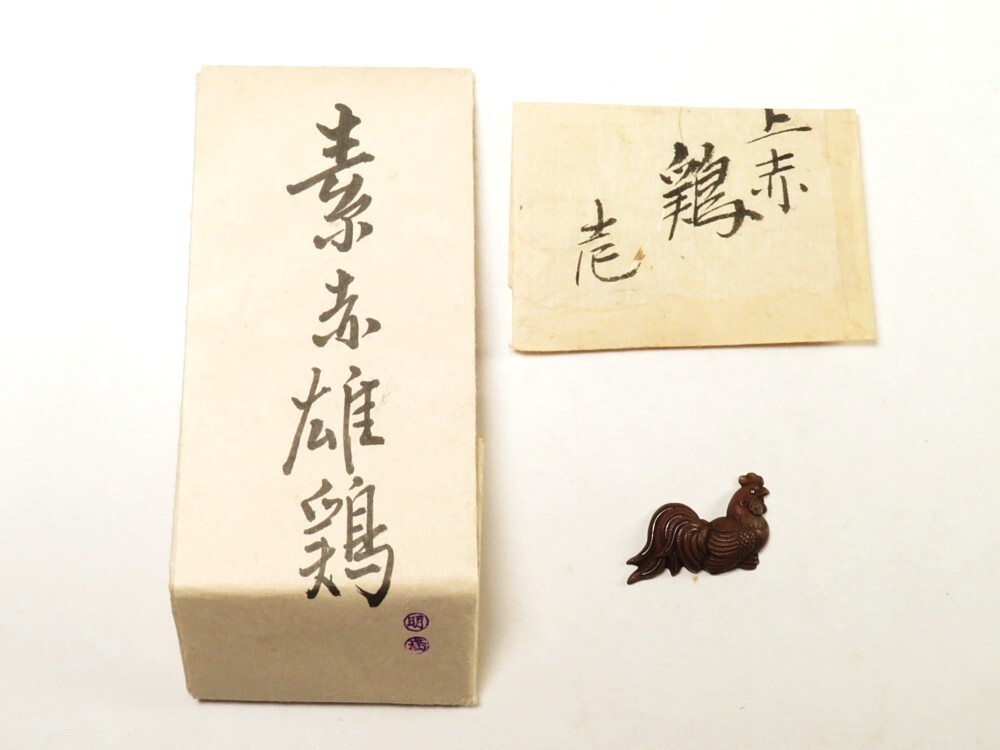 素赤雄鶏
明
上赤
鶏
壱